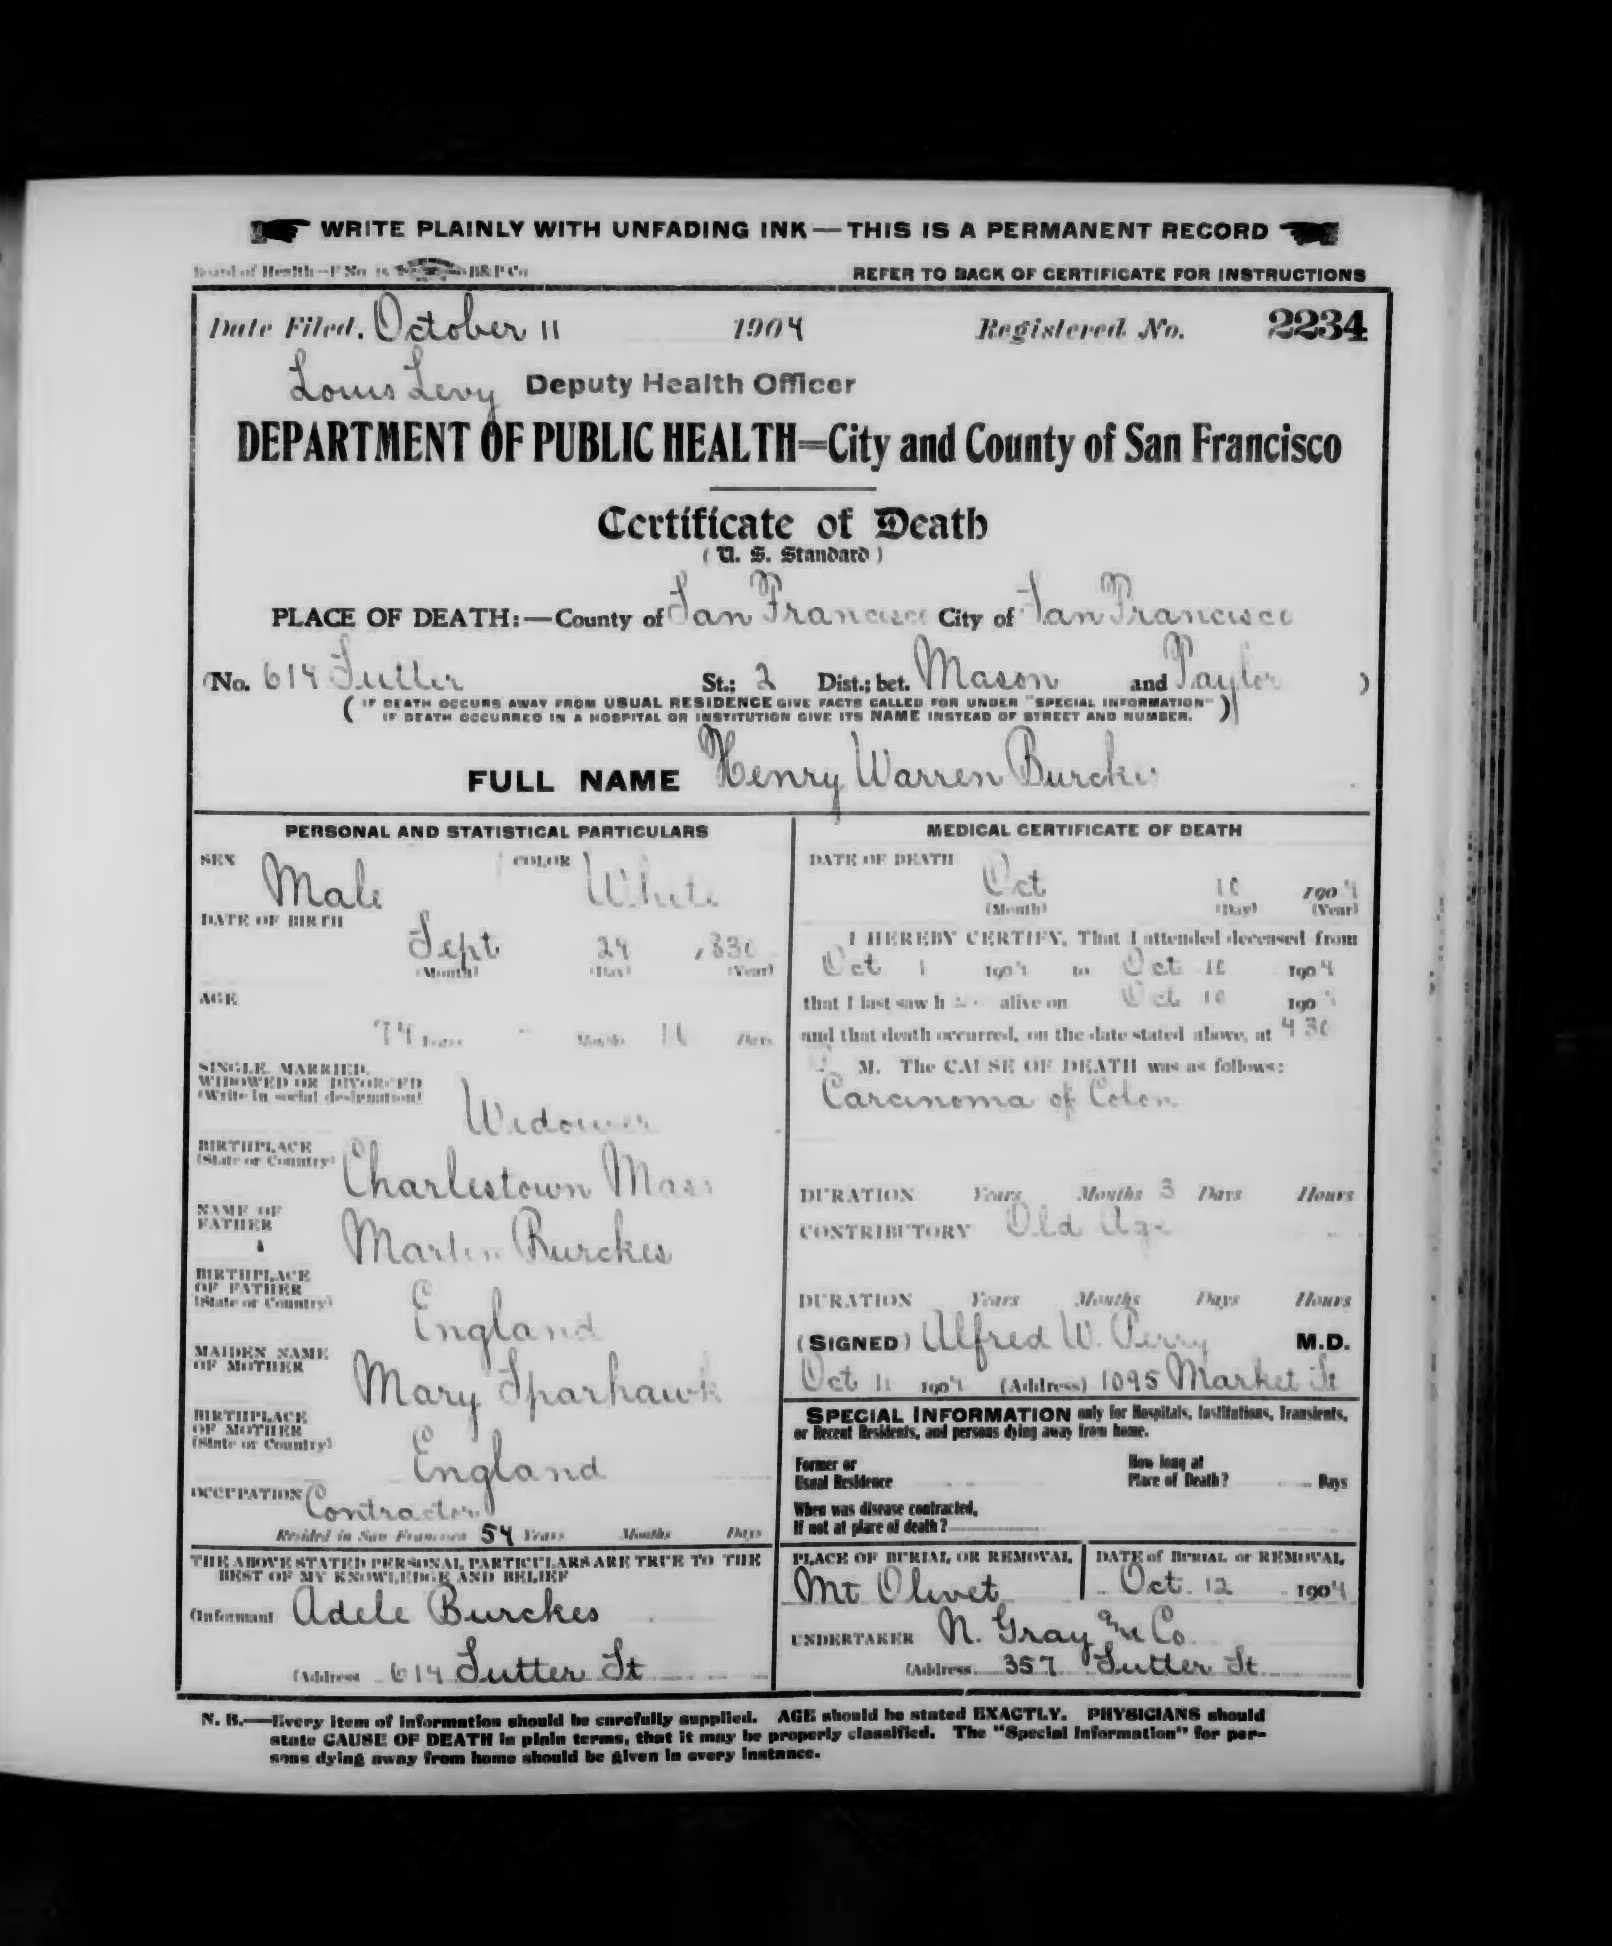 WRITE PLAINLY WITH UNFADING INK—THIS IS A PERMANENT RECORD
Board of Health—F No. 15 B&P Co REFER TO BACK OF CERTIFICATE FOR INSTRUCTIONS
Date Filed, October 11 1904 Registered No. 2234
Louis Levy Deputy Health Officer
DEPARTMENT OF PUBLIC HEALTH=City and County of San Francisco
Certificate of Death
(U. S. Standard)
PLACE OF DEATH:—County of San Francisco City of San Francisco
(No. 614 Sutter St.; 2 Dist.; bet. Mason and Taylor )
( IF DEATH OCCURS AWAY FROM USUAL RESIDENCE GIVE FACTS CALLED FOR UNDER "SPECIAL INFORMATION" )
IF DEATH OCCURRED IN A HOSPITAL OR INSTITUTION GIVE ITS NAME INSTEAD OF STREET AND NUMBER.
FULL NAME Henry Warren Burckes
PERSONAL AND STATISTICAL PARTICULARS
SEX Male COLOR White
DATE OF BIRTH
Sept 24 1830
(Month) (Day) (Year)
AGE
74 Years - Months 16 Days
SINGLE, MARRIED,
WIDOWED OR DIVORCED
(Write in social designation)
Widower
BIRTHPLACE
(State or Country) Charlestown Mass
NAME OF
FATHER Martin Burckes
BIRTHPLACE
OF FATHER
(State or Country) England
MAIDEN NAME
OF MOTHER Mary Sparhawk
BIRTHPLACE
OF MOTHER
(State or Country) England
OCCUPATION Contractor
Resided in San Francisco 54 Years Months Days
THE ABOVE STATED PERSONAL PARTICULARS ARE TRUE TO THE
BEST OF MY KNOWLEDGE AND BELIEF
(Informant Adele Burckes
(Address 614 Sutter St
MEDICAL CERTIFICATE OF DEATH
DATE OF DEATH
Oct 10 1904
(Month) (Day) (Year)
I HEREBY CERTIFY, That I attended deceased from
Oct 1 1904 to Oct 10 1904
that I last saw h alive on Oct 10 190
and that death occurred, on the date stated above, at 4 30
M. The CAUSE OF DEATH was as follows:
Carcinoma of Colon
DURATION Years Months 3 Days Hours
CONTRIBUTORY Old Age
DURATION Years Months Days Hours
(SIGNED) Alfred W. Perry M.D.
Oct 11 1904 (Address) 1095 Market St
SPECIAL INFORMATION only for Hospitals, Institutions, Transients,
or Recent Residents, and persons dying away from home.
Former or
Usual Residence
How long at
Place of Death? Days
When was disease contracted,
If not at place of death?
PLACE OF BURIAL OR REMOVAL
Mt Olivet
DATE of BURIAL or REMOVAL
Oct. 12 1904
UNDERTAKER N. Gray and Co.
(Address 357 Sutter St
N. B.—Every item of information should be carefully supplied. AGE should be stated EXACTLY. PHYSICIANS should
state CAUSE OF DEATH in plain terms, that it may be properly classified. The "Special Information" for per-
sons dying away from home should be given in every instance.